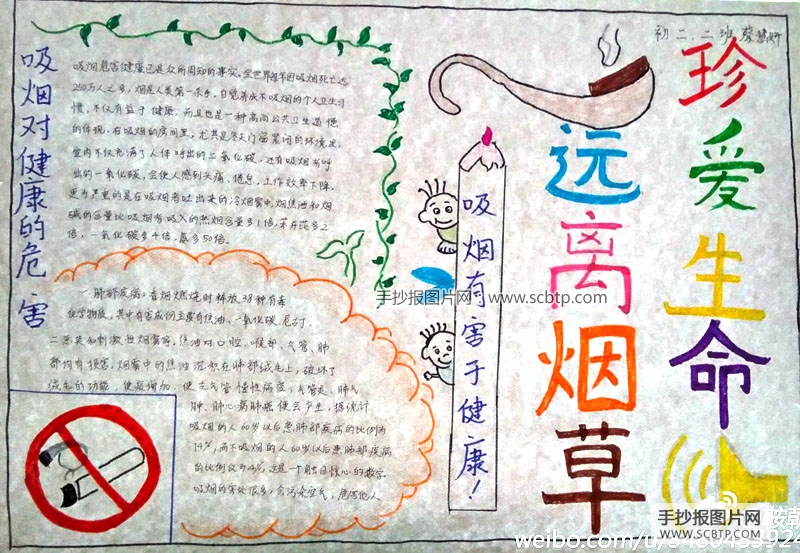 初二.二班 蔡慧妍
珍爱生命
远离烟草
吸烟有害于健康!
吸烟对健康的危害
吸烟危害健康已是众所周知的事实。全世界每年因吸烟死亡达
250万人之多,烟是人类第一杀手。自觉养成不吸烟的个人卫生习
惯,不仅有益于健康,而且也是一种高尚公共卫生道德
的体现。在吸烟的房间里,尤其是冬天门窗紧闭的环境里,
室内不仅充满了人体呼出的二氧化碳,还有吸烟者呼
出的一氧化碳,会使人感到头痛、倦怠,工作效率下降,
更为严重的是在吸烟者吐出来的冷烟雾中,烟焦油和烟
碱的含量比吸烟者吸入的热烟含量多1倍,苯并芘多2
倍,一氧化碳多4倍,氨多50倍。
一.肺部疾病:香烟燃烧时释放38种有毒
化学物质,其中有害成份主要有焦油、一氧化碳、尼古丁
二恶英和刺激性烟雾等。焦油对口腔、喉部、气管、肺
部均有损害。烟雾中的焦油沉积在肺部绒毛上,破坏了
绒毛的功能,使痰增加,使支气管慢性病变,气管炎、肺气
肿、肺心病肺癌便会产生,据统计
吸烟的人60岁以后患肺部疾病的比例为
74%,而不吸烟的人60岁以后患肺部疾病
的比例仅为4%,这是一个触目惊心的数字.
吸烟的害处很多,会污染空气,危害他人
手抄报图片网:www.scbtp.com
手抄报图片网
WWW.SCBTP.COM